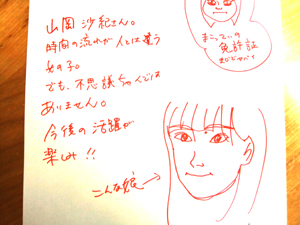 山岡 沙紀さん。
時間の流れが人とは違う
女の子。
でも、不思議ちゃんでは
ありません。
今後の活躍が
楽しみ!!
こんな娘→
まっていの
免許証